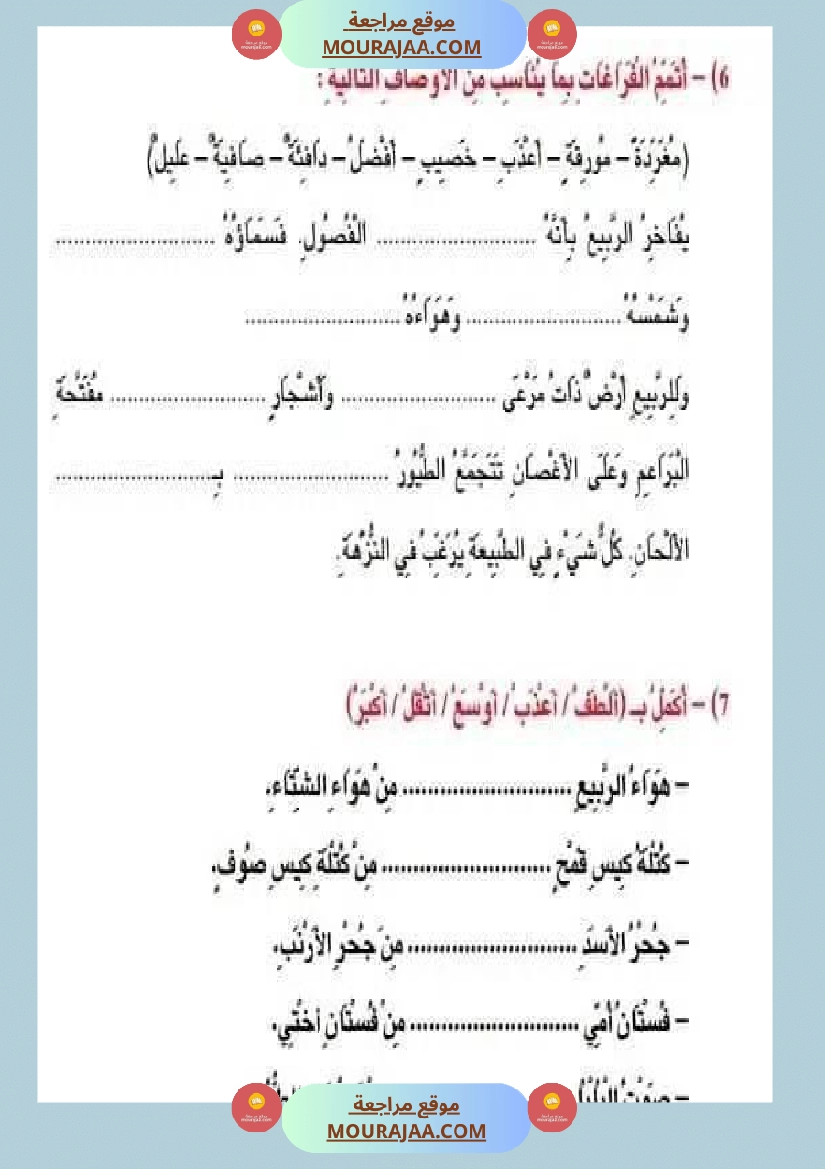 موقع مراجعة
MOURAJAA.COM
6) – أُتَمِّمُ الْفَرَاغَاتِ بِمَا يُنَاسِبُ مِنَ الأَوْصَافِ التَّالِيَةِ :
(مُغَرِّدَةً – مُورِقَةٍ – أَعْذَبِ – خَصِيبٍ – أَفْضَلُ – دَافِئَةٌ – صَافِيَةٌ – عَلِيلٌ)
يُفَاخِرُ الرَّبِيعُ بِأَنَّهُ ........................... الْفُصُولِ. فَسَمَاؤُهُ ...........................
وَشَمْسُهُ ........................... وَهَوَاءُهُ ...........................
وَلِلرَّبِيعِ أَرْضٌ ذَاتُ مَرْعَى ........................... وَأَشْجَارٍ ........................... مُفَتَّحَةِ
الْبَرَاعِمِ وَعَلَى الأَغْصَانِ تَتَجَمَّعُ الطُّيُورُ ........................... بِـ...........................
الأَلْحَانِ. كُلُّ شَيْءٍ فِي الطَّبِيعَةِ يُرَغِّبُ فِي النُّزْهَةِ.
7) – أُكْمِلُ بـ (أَلْطَفُ / أَعْذَبُ / أَوْسَعُ / أَثْقَلُ / أَكْبَرُ)
– هَوَاءُ الرَّبِيعِ ........................... مِنْ هَوَاءِ الشِّتَاءِ.
– كُتْلَةُ كِيسِ قَمْحٍ ........................... مِنْ كُتْلَةِ كِيسِ صُوفٍ.
– جُحْرُ الأَسَدِ ........................... مِنَ جُحْرِ الأَرْنَبِ.
– فُسْتَانُ أُمِّي ........................... مِنْ فُسْتَانِ أُخْتِي.
– صَوْتُ
موقع مراجعة
MOURAJAA.COM